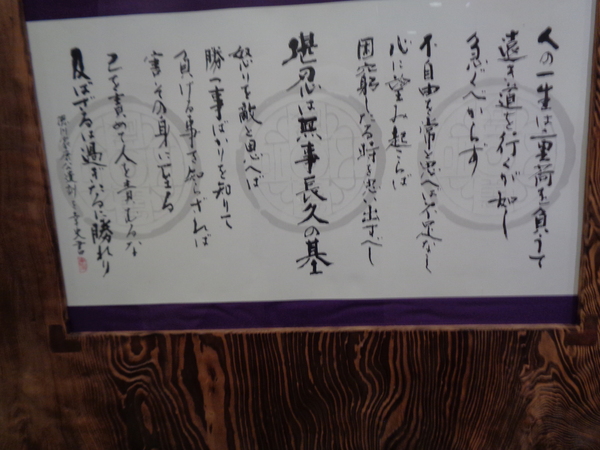 人の一生は重荷を負うて
遠き道を行くが如し
急ぐべからず
不自由を常と思へば不足なし
心に望み起らば
困窮したる時を思い出すべし
堪忍は無事長久の基
怒りを敵と思へば
勝つ事ばかりを知りて
負ける事を知らざれば
害その身に至る
己を責めて人を責むるな
及ばざるは過ぎたるに勝れり